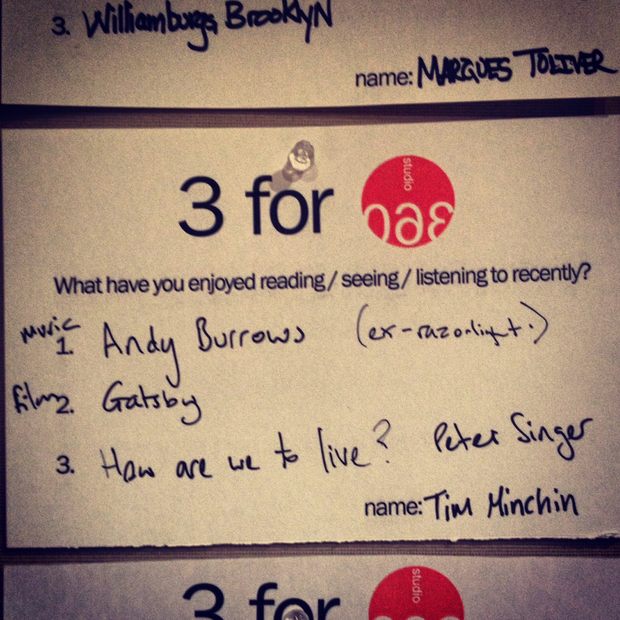 3. Williamburgs, Brooklyn
name: MARQUES TOLIVER
3 for studio 360
What have you enjoyed reading / seeing / listening to recently?
music 1. Andy Burrows (ex-razorlight.)
film 2. Gatsby
3. How are we to live? Peter Singer
name: Tim Minchin
3 for studio